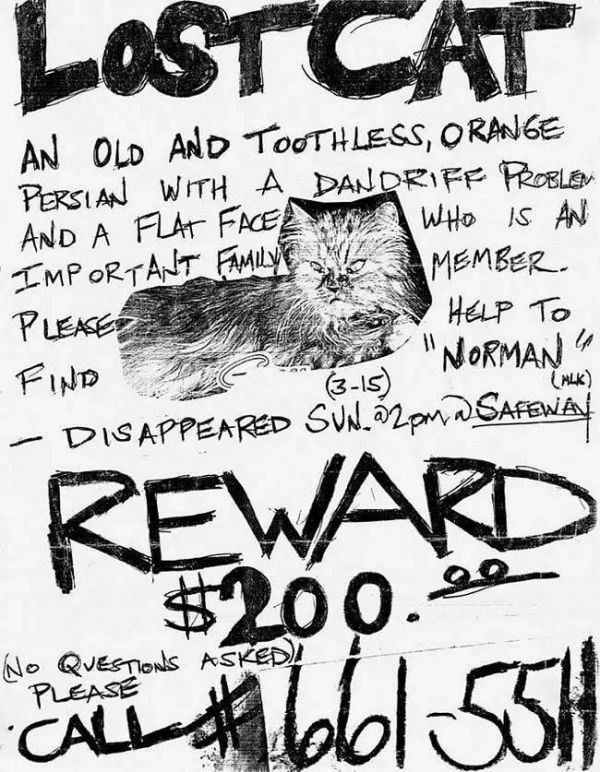 LOST CAT
AN OLD AND TOOTHLESS, ORANGE
PERSIAN WITH A DANDRIFF PROBLEM
AND A FLAT FACE WHO IS AN
IMPORTANT FAMILY MEMBER.
PLEASE HELP TO
FIND "NORMAN"
(3-15) (MLK)
— DISAPPEARED SUN. @2pm @ SAFEWAY
REWARD
$200.00
(NO QUESTIONS ASKED)!
PLEASE
CALL # 661-5511